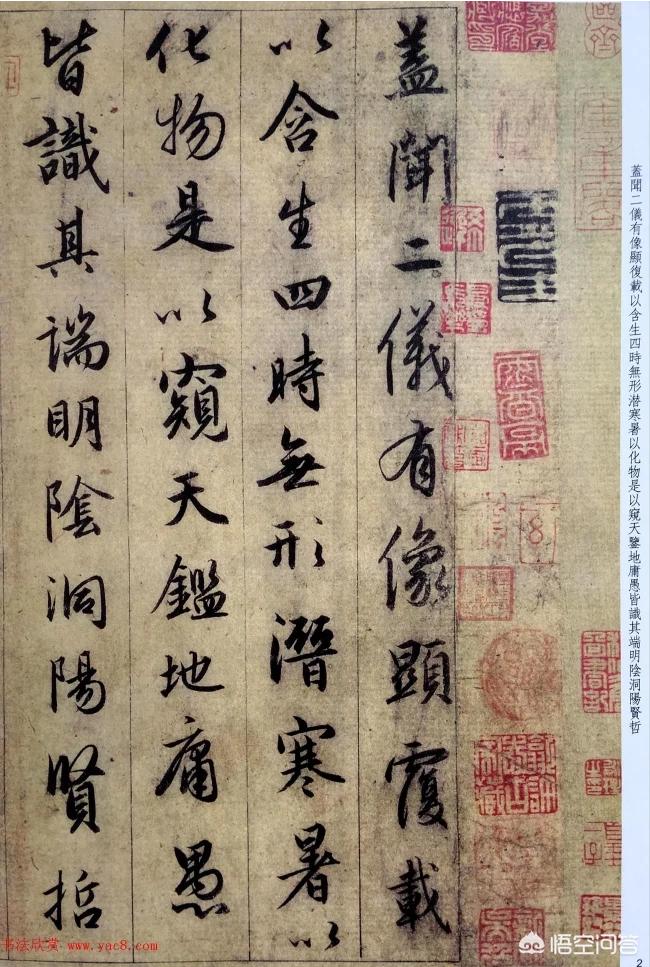 蓋聞二儀有像顯復載以含生四時無形潜寒暑以化物是以窺天鑒地庸愚皆識其端明陰洞陽賢哲
蓋聞二儀有像顯覆載
以含生四時無形潛寒暑以
化物是以窺天鑑地庸愚
皆識其端明陰洞陽賢哲
书法欣赏 www.yac8.com
悟空问答
2